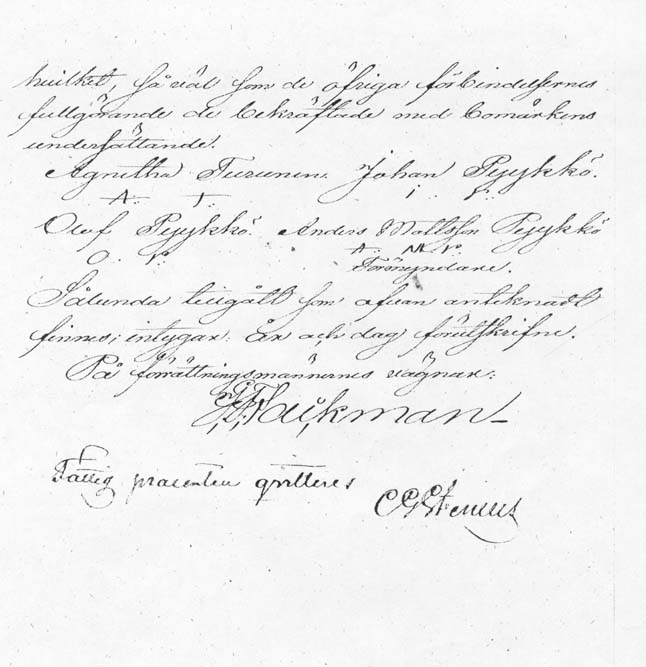 hvilket, så väl som de öfriga förbindelsernes
fullgörande de bekräftade med bomärkens
undersättande.
Agnetha Turunen. Johan Pyykkö.
A. T. I. P.
Olof Pyykkö. Anders Mattsson Pyykkö
O. P. A. M. P.
Förmyndare.
Sålunda tillgått som ofvan antecknadt
finnes; intygar. År och dag förutskrifne.
På förrättningsmännernes vägnar:
Hackman
Fattig procenten qvitteres